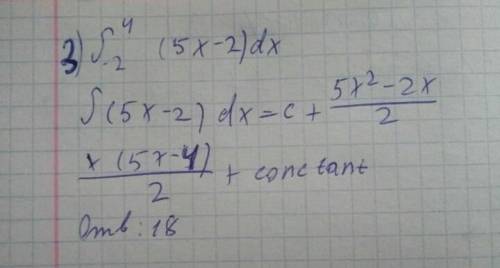 3) ∫₋₂⁴ (5x-2)dx
∫(5x-2) dx = c + (5x²-2x)/2
x(5x-4)/2 + conctant
Отв: 18